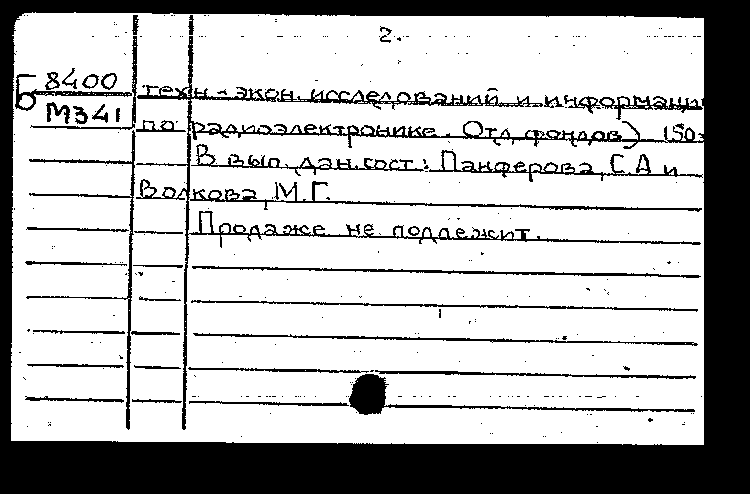 2.
Б 8400 техн.-экон. исследований и информации
М341 по радиоэлектронике. Отд. фондов) 150э
В вып. дан. сост.: Панферова, С.А и
Волкова, М.Г.
Продаже не подлежит.